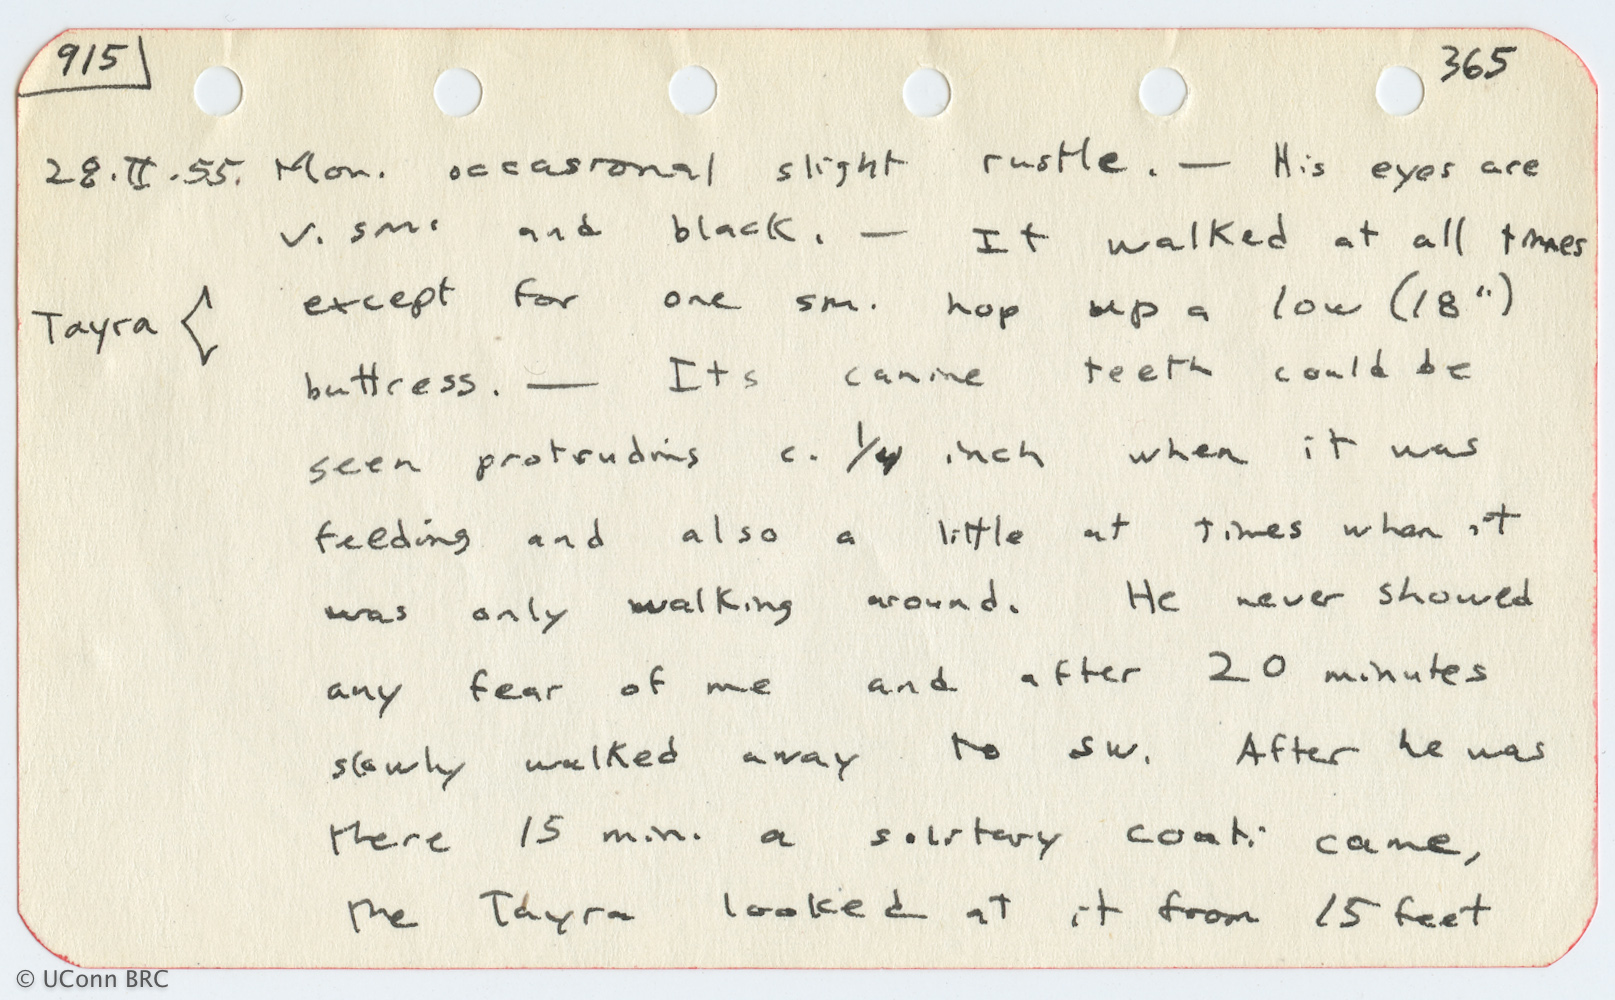 915
365
28.II.55. Mon. occasional slight rustle. — His eyes are
v. sm. and black. — It walked at all times
Tayra { except for one sm. hop up a low (18")
buttress. — Its canine teeth could be
seen protruding c. 1/4 inch when it was
feeding and also a little at times when it
was only walking around. He never showed
any fear of me and after 20 minutes
slowly walked away to SW. After he was
there 15 min. a solitary coati came,
the Tayra looked at it from 15 feet
© UConn BRC